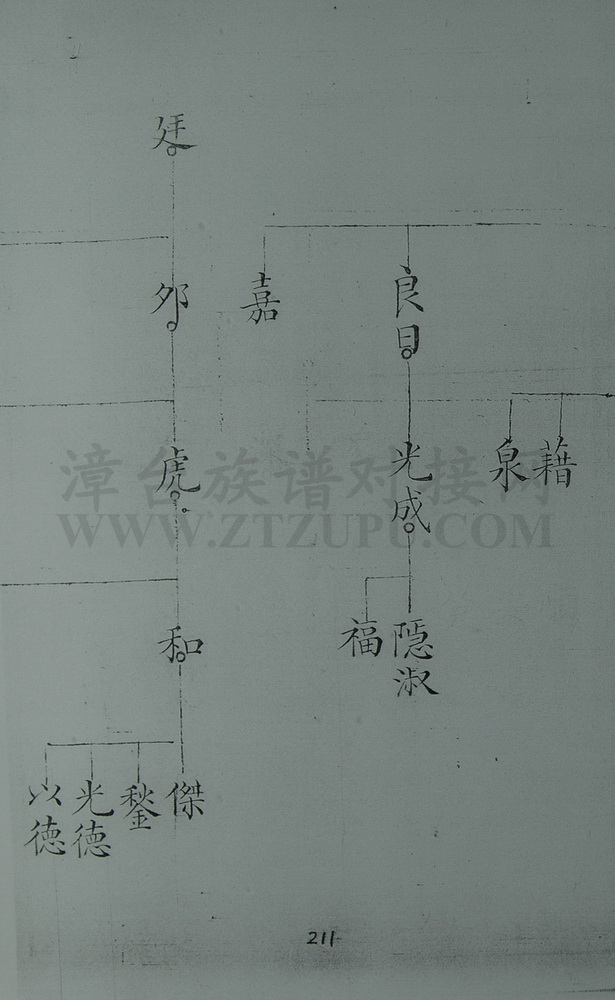 廷
嘉
良日
邜
藉
泉
光成
虎
漳台族谱对接网
WWW.ZTZUPU.COM
隱淑
福
和
傑
鍫
光德
以德
211